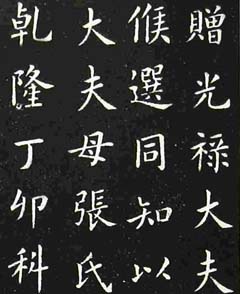 贈光禄大夫
候選同知以
大夫母張氏
乹隆丁卯科